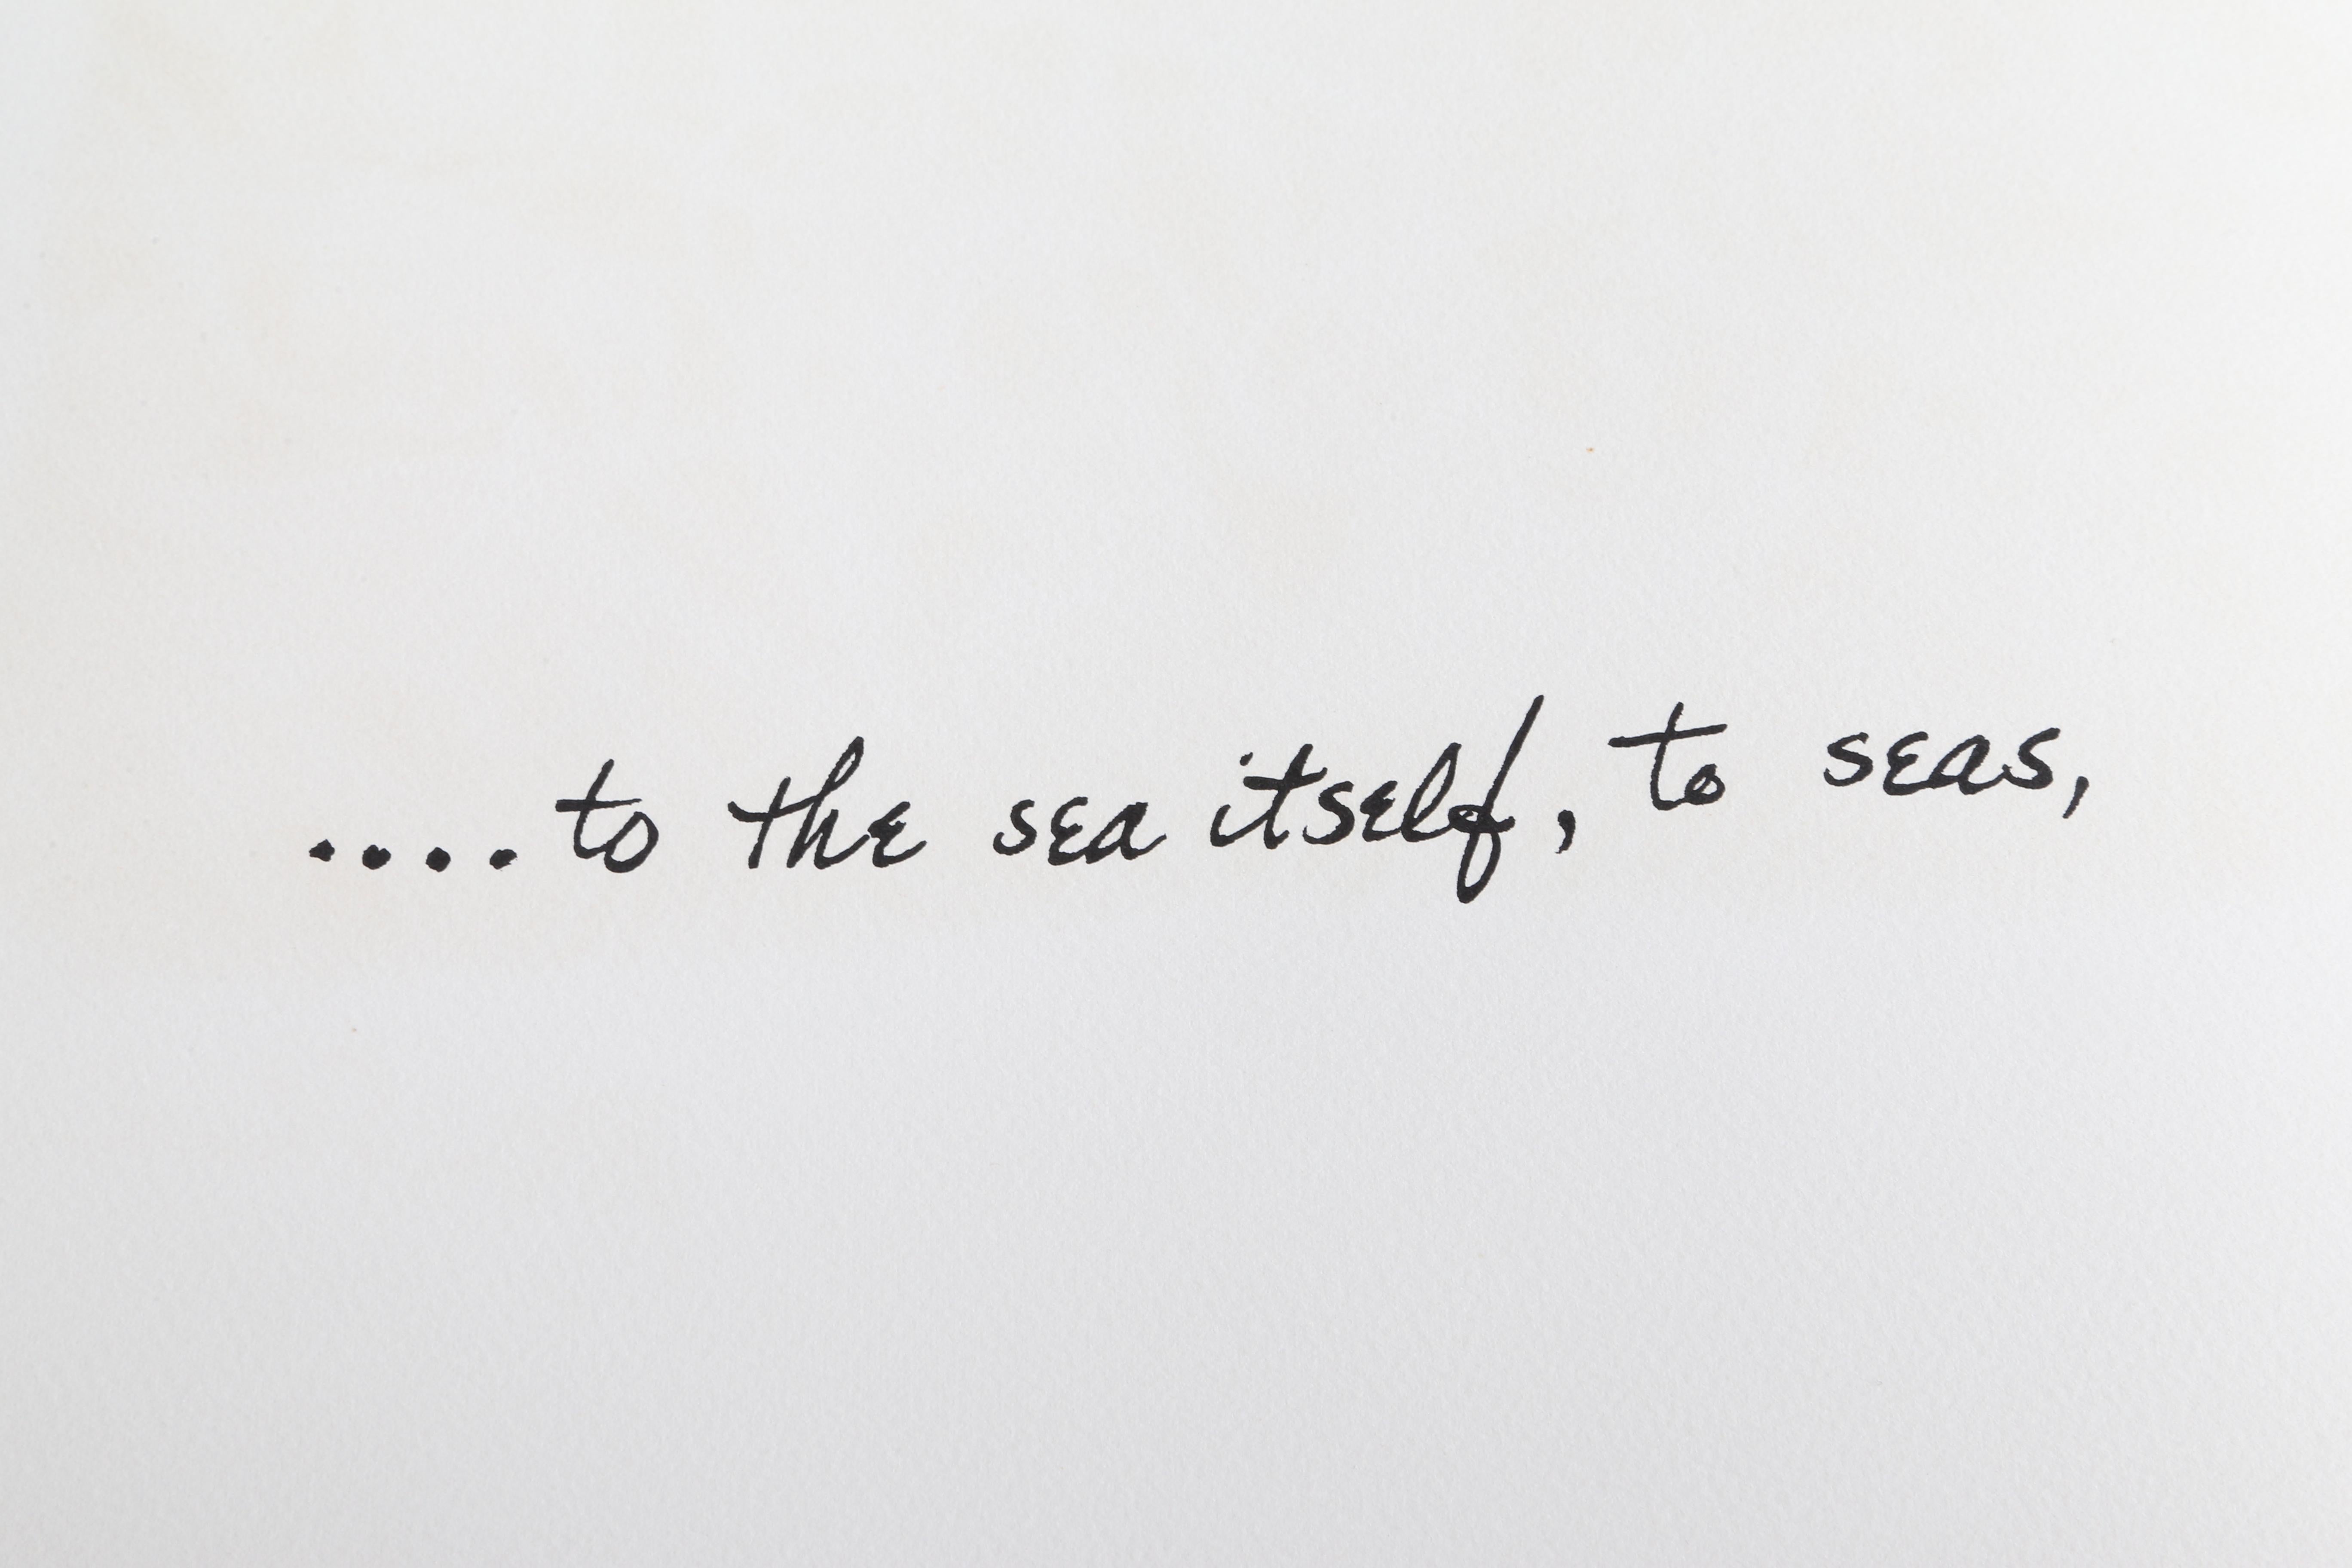 ....to the sea itself, to seas,